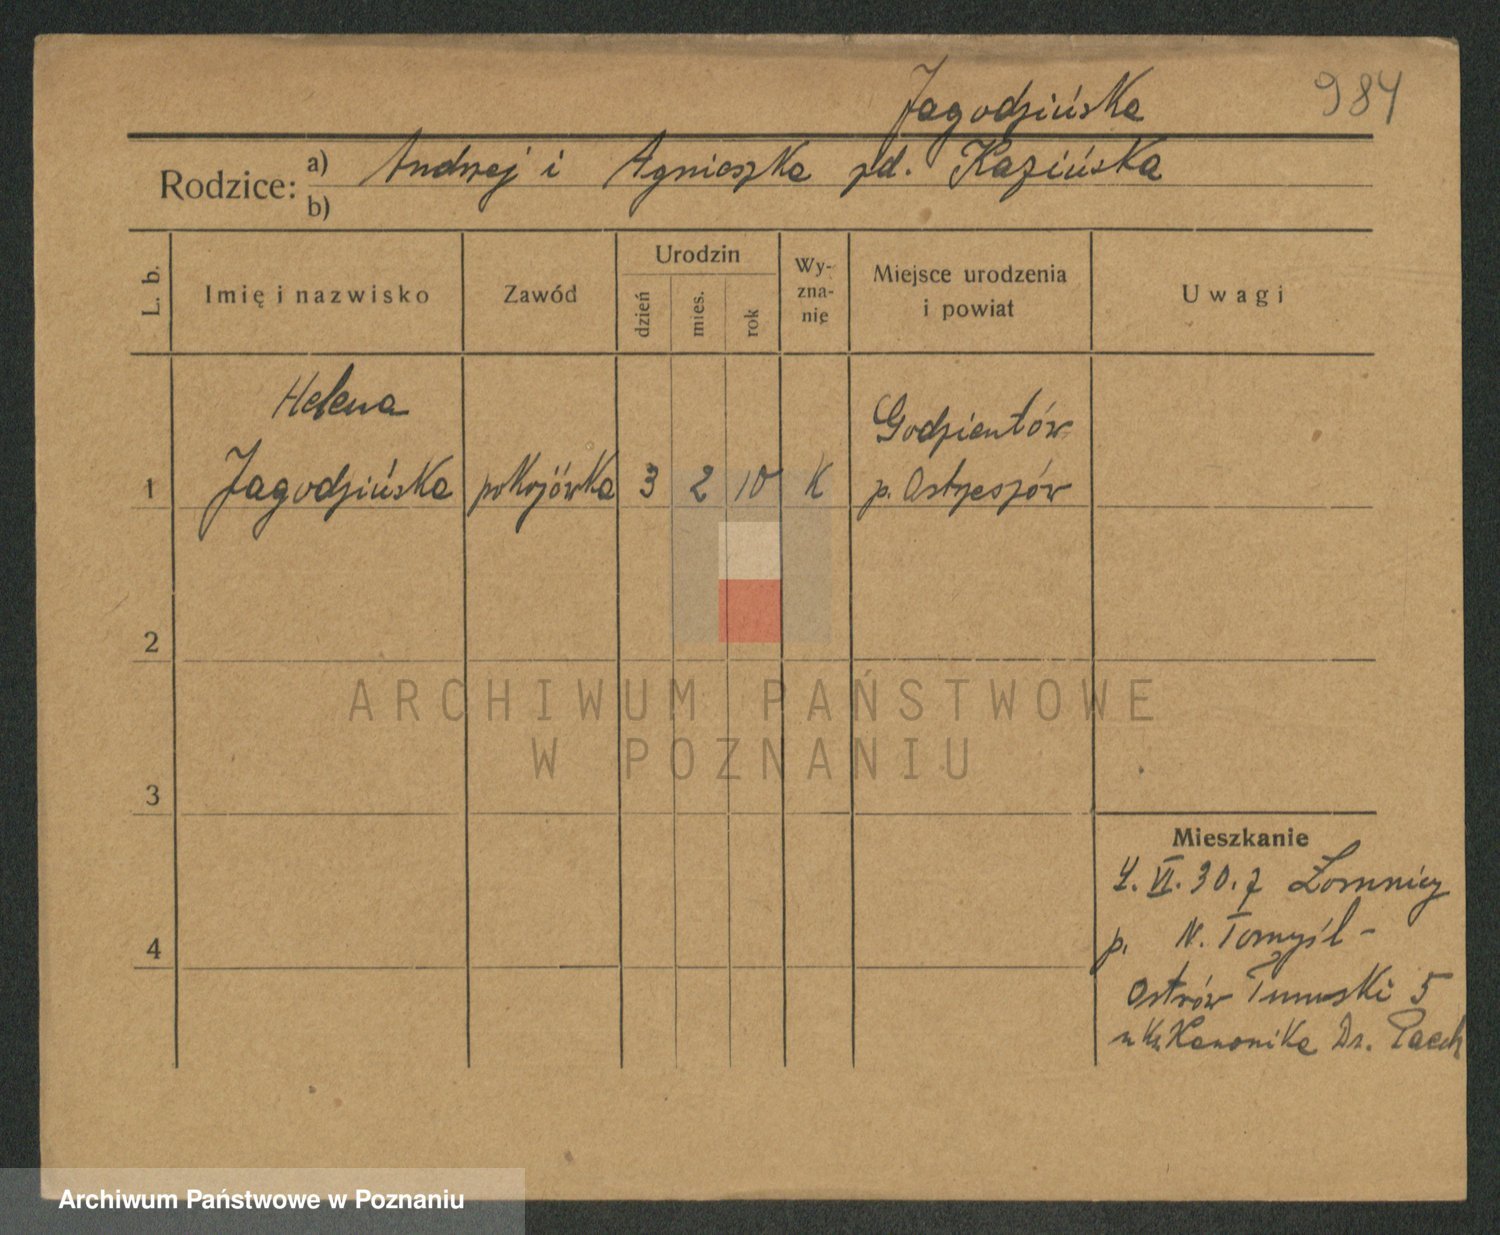 984
Jagodzińska
Rodzice: a) Andrzej i Agnieszka zd. Kazińska
b)
L. b.
Imię i nazwisko
Zawód
Urodzin
dzień
mies.
rok
Wy-
zna-
nie
Miejsce urodzenia
i powiat
Uwagi
Helena
Godzientów
1 Jagodzińska pokojówka 3 2 10 K p. Ostrzeszów
2
ARCHIWUM PAŃSTWOWE
W POZNANIU
3
Mieszkanie
4. VI. 30. z Łomnicy
p. N. Tomyśl -
4
Ostrów Tumski 5
u Ks. Kanonika Dr. Paech
Archiwum Państwowe w Poznaniu